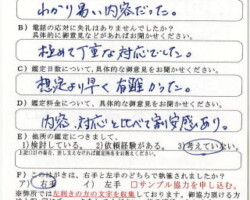 わかり易い内容だった。
B) 電話の応対に失礼はありませんでしたか?
具体的に御意見などがあればお聞かせください。
極めて丁重な対応でした。
C) 鑑定日数について、具体的な御意見をお聞かせください。
想定より早く有難かった。
D) 鑑定料金について、具体的な御意見をお聞かせください。
内容、対応も比べて割安感あり。
E) 他所の鑑定につきまして、
1)検討している。 2)依頼経験がある。 3)考えていない。
F) このはがきは右手と左手のどちらで執筆されましたか?
ア) 右手 イ) 左手 □サンプル協力を申し込む。
弊所では左利きの方の文字を収集しております。御協力頂ける方